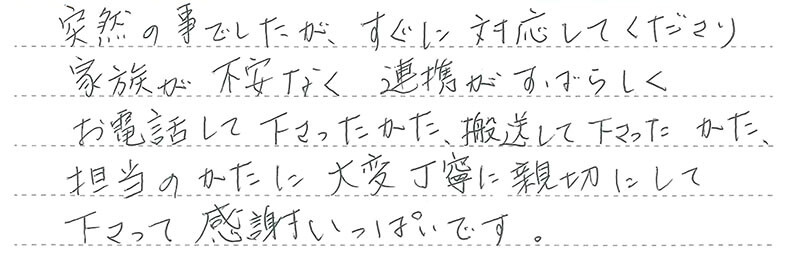 突然の事でしたが、すぐに対応してくださり
家族が不安なく 連携がすばらしく
お電話して下さったかた、搬送して下さったかた、
担当のかたに大変丁寧に親切にして
下さって感謝いっぱいです。